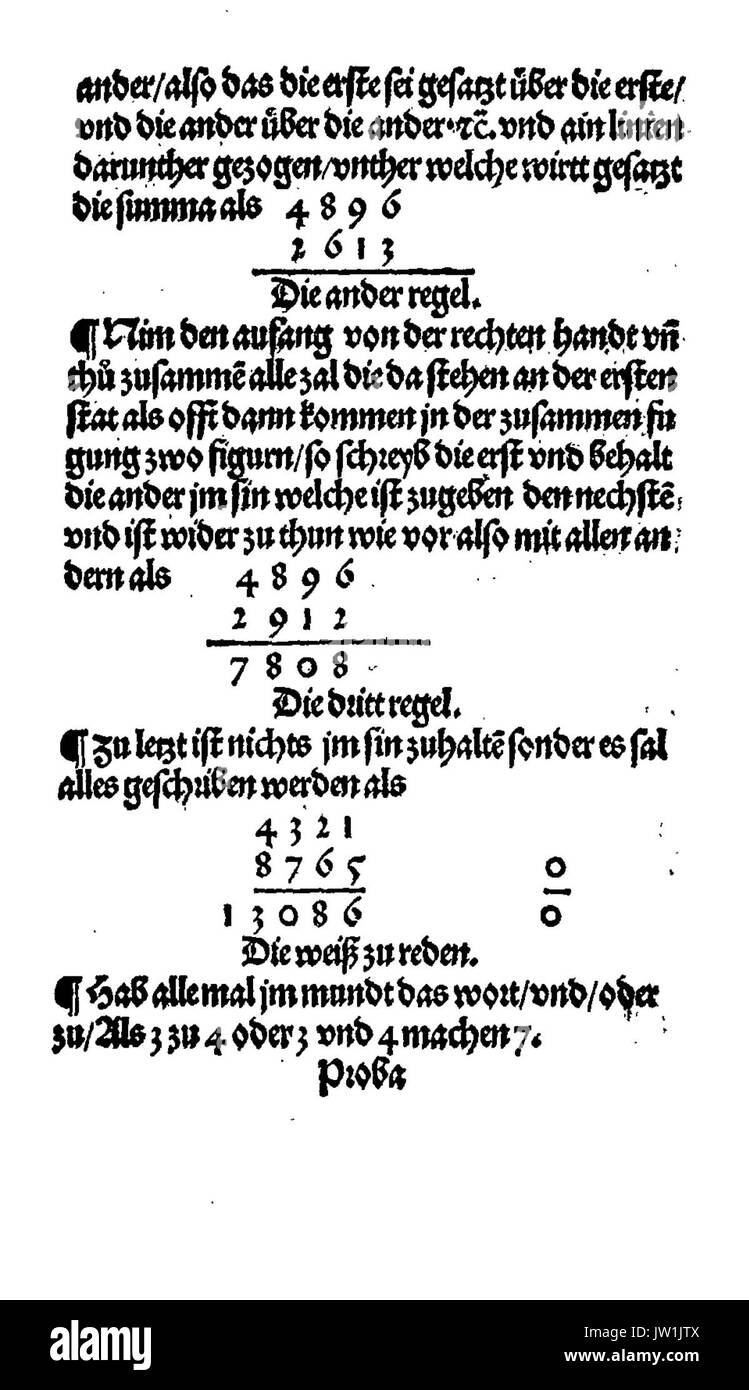 ander/also das die erste sei gesatzt über die erste/
vnd die ander über die ander·ꝛc̄. vnd ain linien
darunther gezogen/vnther welche wirtt gesatzt
die summa als 4 8 9 6
2 6 1 3
Die ander regel.
¶ Nim den anfang von der rechten handt vn̄
thů zusammē alle zal die da stehen an der ersten
stat als offt dann kommen jn der zusammen fu
gung zwo figurn/so schreyb die erst vnd behalt
die ander jm sin welche ist zugeben den nechstē
vnd ist wider zu thun wie vor also mit allen an
dern als 4 8 9 6
2 9 1 2
7 8 0 8
Die dritt regel.
¶ Zu letzt ist nichts jm sin zuhaltē sonder es sal
alles geschriben werden als
4 3 2 1
8 7 6 5 0
1 3 0 8 6 0
Die weiß zu reden.
¶ Hab alle mal jm mundt das wort/vnd/oder
zu/Als 3 zu 4 oder 3 vnd 4 machen 7.
Proba
alamy
alamy stock photo
Image ID: JW1JTX
www.alamy.com